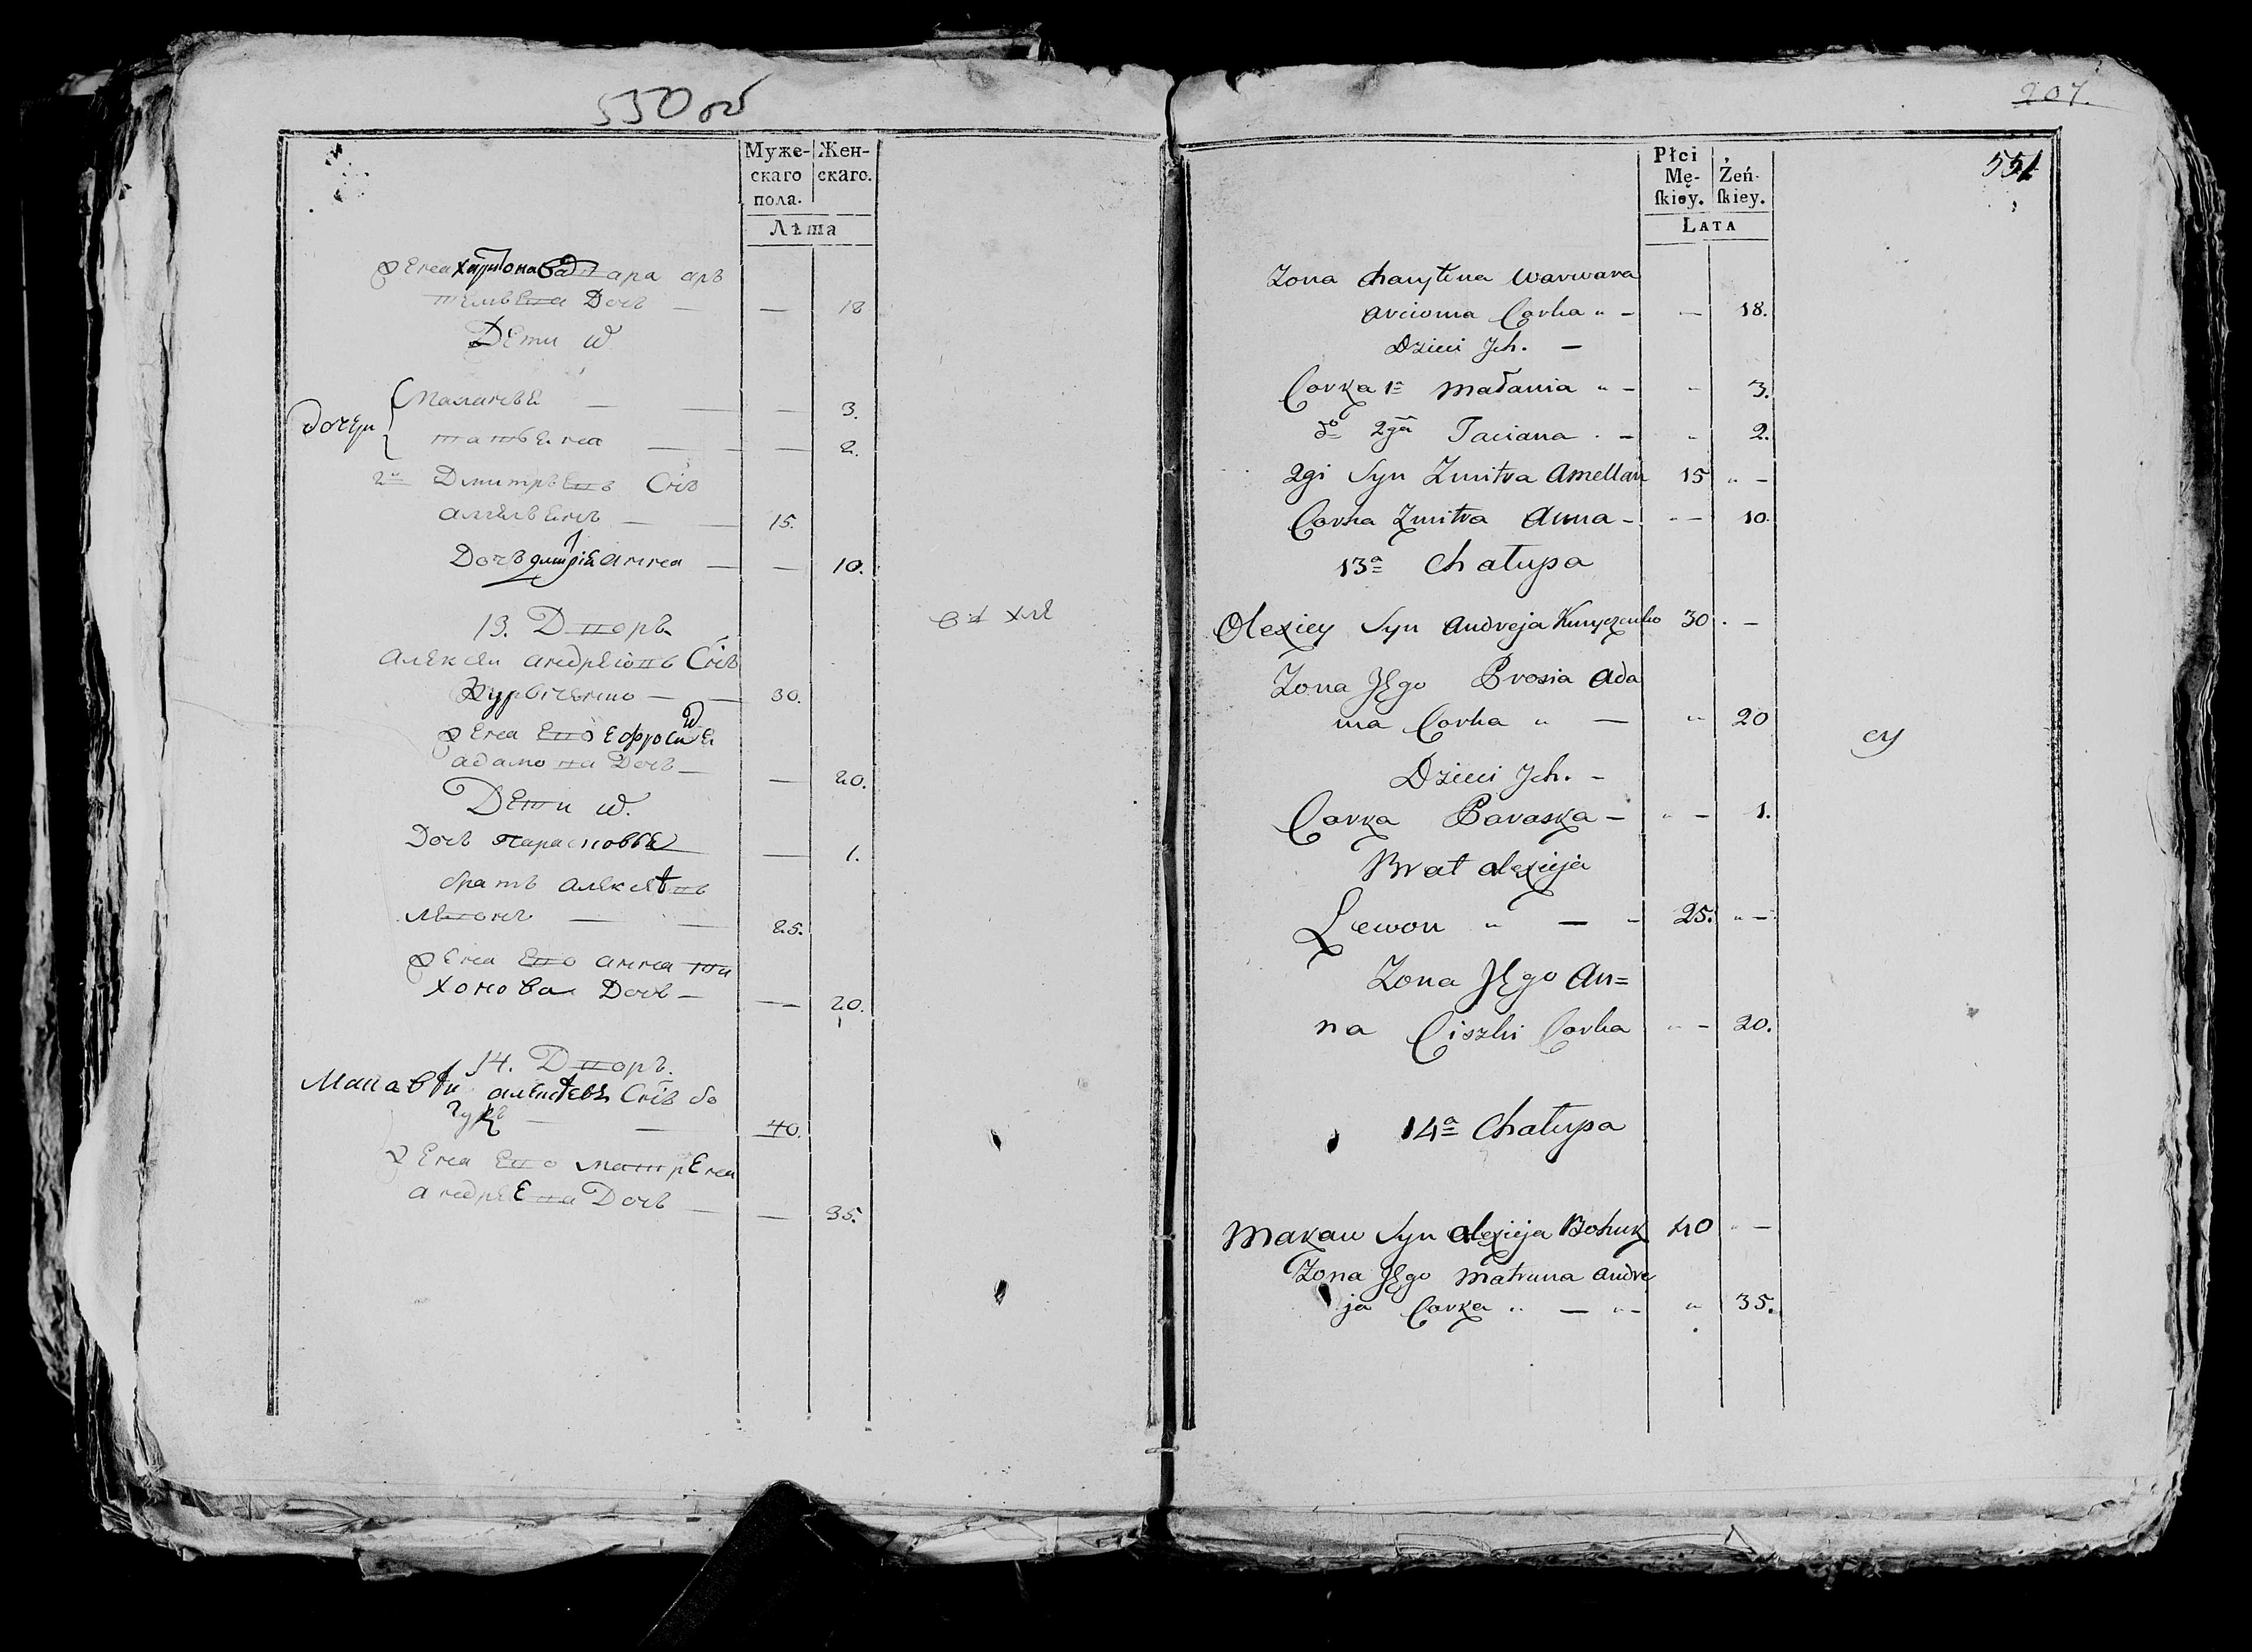 550 об
Муже-
скаго
пола.
Жен-
скаго.
Лѣта
жена харитона варвара ар
темьева Дочь — — 18
Дети их
Дочери
Маланья — — — 3.
татьяна — — — 2.
2й Дмитрьевъ Снъ
амельянъ — — 15.
Дочь дмитрія анна — — 10.
13. Дворъ
Алексѣй андреювъ Снъ
— — 30.
жена ево ефросинья
адамова Дочь — — 20.
Дети их.
Дочь Парасковья — 1.
братъ алексѣевъ
левонъ — — 25.
жена ево анна
хонова Дочь — — 20.
14. Дворъ.
алексѣевъ Снъ бо
гукъ — — 40.
жена ево матрена
андреева Дочь — — 35.
207.
551
Płci
Mę-
ſkiey.
Żeń-
ſkiey.
LATA
Zona Charytina Warwara
Arcioma Corka " — — 18.
Dzieci Jch. —
Corka 1a Małania " — " 3.
do 2ga Taciana . — " 2.
2gi Syn Zmitra Amellan 15 " —
Corka Zmitra Anna — " — 10.
13a Chałupa
Olexiey Syn Andreja 30 . —
Zona Jego Prosia Ada
ma Corka " — " 20
Dzieci Jch. —
Corka Paraska — " — 1.
Brat Alexieja
Lewon " — — 25. " —
Zona Jego An=
na Ciszki Corka " — 20.
14a Chałupa
Makau Syn Alexieja Bohuk 40 " —
Zona Jego Matruna Andre
ja Corka " — " — " 35.